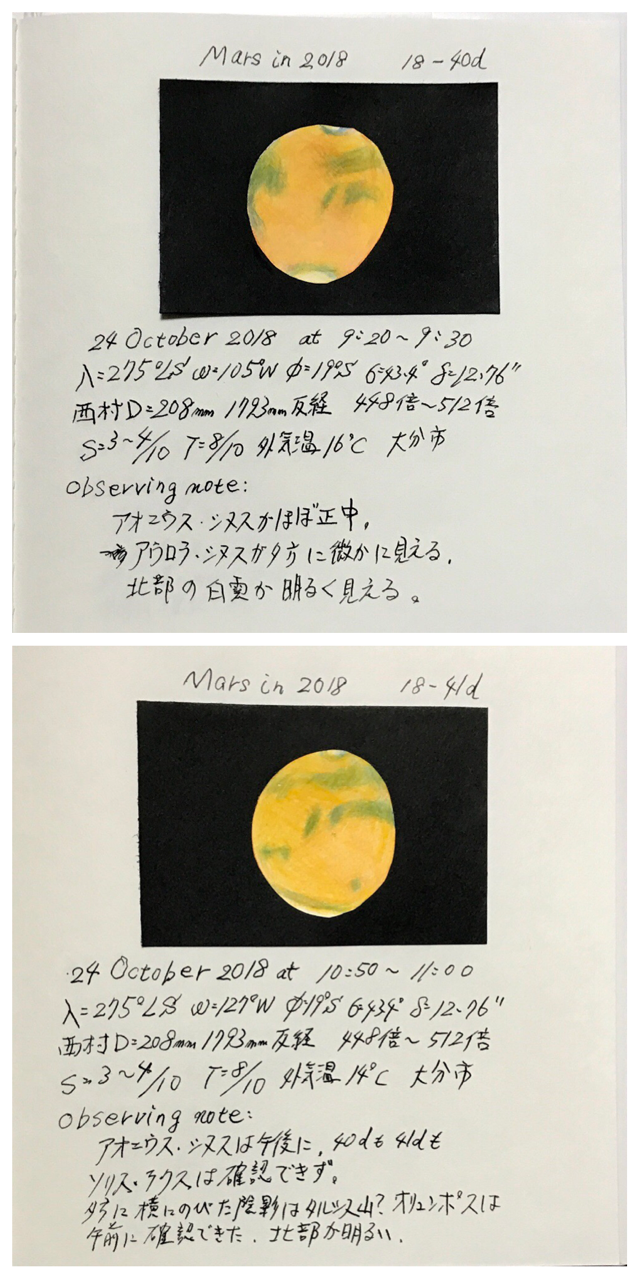 Mars in 2018 18-40d
24 October 2018 at 9:20~9:30
λ=275°LS ω=105°W φ=19°S G=43.4° δ=12.76"
西村D=208mm 1793mm反経 448倍~512倍
S=3~4/10 T=8/10 外気温16℃ 大分市
Observing note:
アオニウス・シヌスがほぼ正中。
アウロラ・シヌスが夕方に微かに見える。
北部の白雲が明るく見える。
Mars in 2018 18-41d
24 October 2018 at 10:50~11:00
λ=275°LS ω=127°W φ=19°S G=43.4° δ=12.76"
西村D=208mm 1793mm反経 448倍~512倍
S=3~4/10 T=8/10 外気温14℃ 大分市
Observing note:
アオニウス・シヌスは午後に、40dも41dも
ソリス・ラクスは確認できず。
夕方に横にのびた陰影はタルシス山? オリュンポスは
午前に確認できた。北部が明るい。